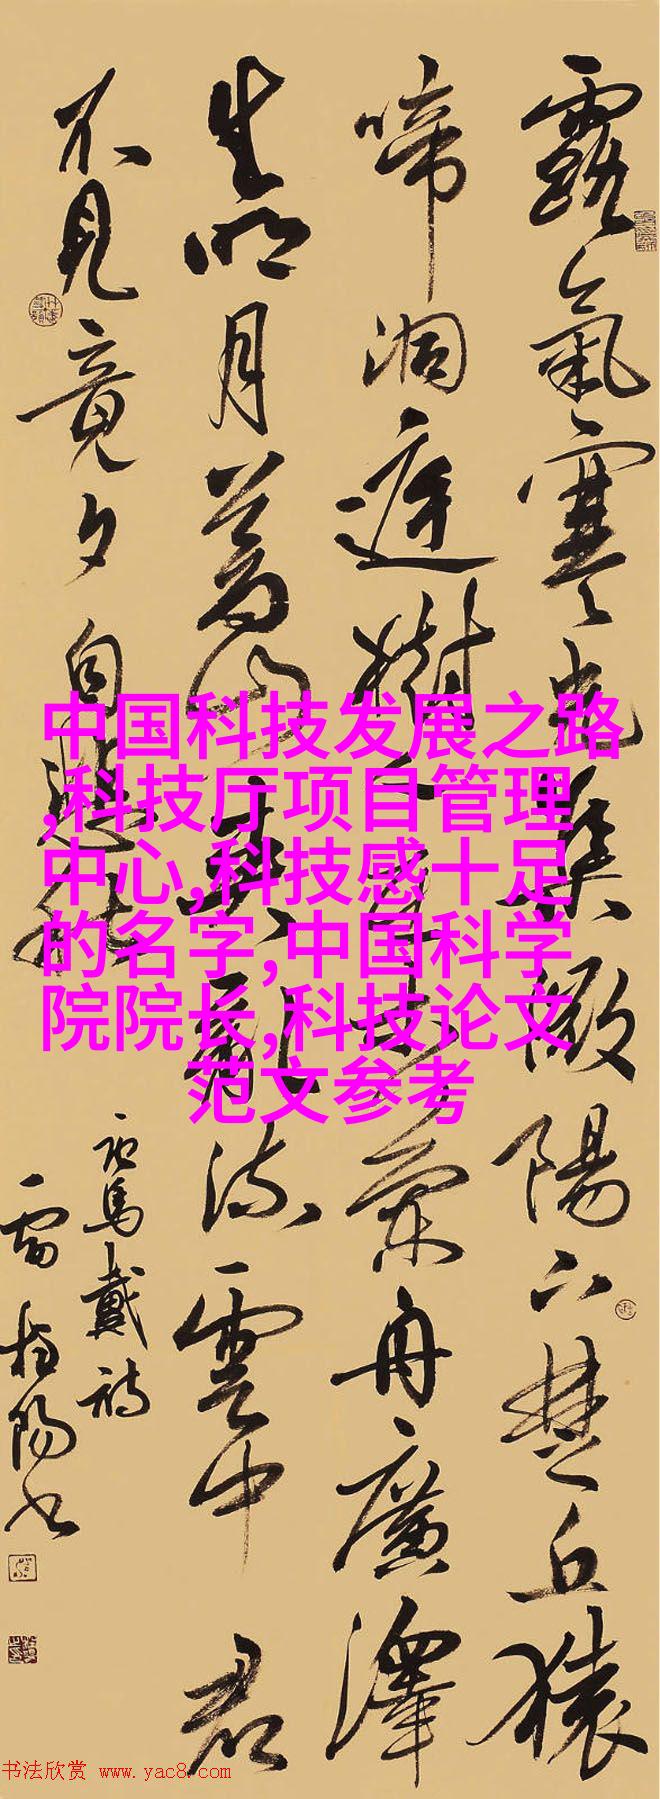 露氣寒光集微陽下楚丘猿
啼洞庭樹人在木蘭舟廣澤
生明月蒼山夾亂流雲中君
不見竟夕自悲秋
馬戴詩
雷陽书
中国科技发展之路
,科技厅项目管理
中心,科技感十足
的名字,中国科学
院院长,科技论文
范文参考
书法欣赏 www.yac8.com